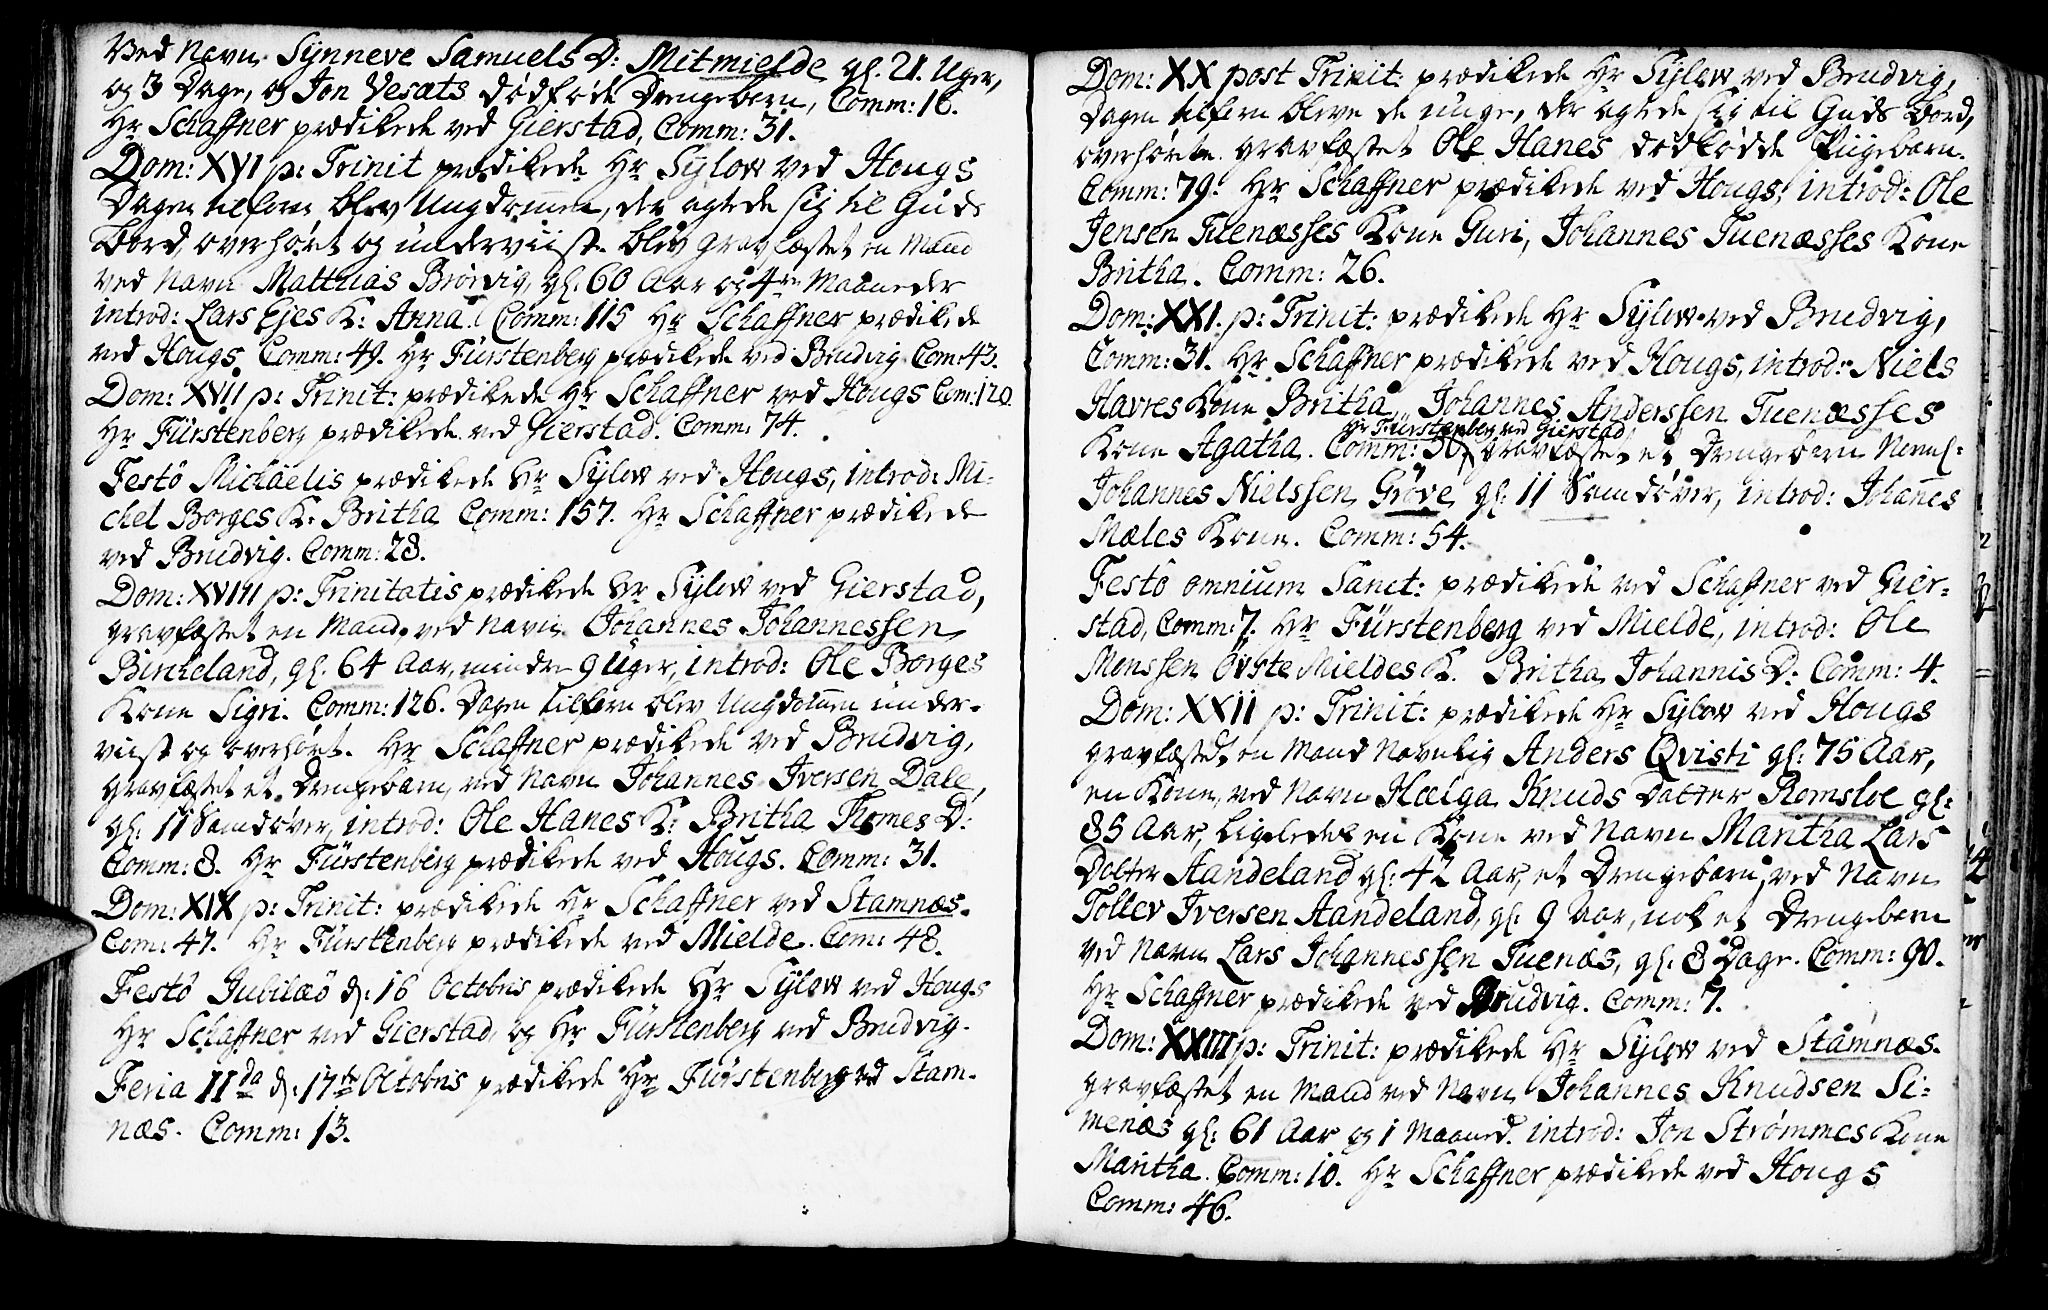 Ved Navn Synneve Samuels D: Mitmielde gl. 21. Uger,
og 3 Dage, og Jon Vesæts dødføde Drengebarn, Comm: 16.
Hr Schaffner prædikede ved Gierstad, Comm: 31.
Dom: XVI p: Trinit prædikede Hr Sylow ved Hougs
Dagen tilforn blev Ungdommen, der agtede sig til Guds
Bord, overhørt og underviist. blev gravfæstet en Mand
ved Navn Matthias Brørvig, gl: 60 Aar og 4re Maaneder
introd: Lars Ejes K: Anna. Comm: 115 Hr Schaffner prædikede
ved Hougs. Comm: 49. Hr Fürstenberg prædikede ved Brudvig Com: 43.
Dom: XVII p: Trinit: prædikede Hr Schaffner ved Hougs Com: 120
Hr Fürstenberg prædikede ved Gierstad. Comm: 74.
Festo Michaelis prædikede Hr Sylow ved Hougs, introd: Mi-
chel Borges K: Britha Comm: 157. Hr Schaffner prædikede
ved Brudvig. Comm: 28.
Dom: XVIII p: Trinitatis prædikede Hr Sylow ved Gierstad,
gravfæstet en Mand, ved Navn Johannes Johannessen
Bircheland, gl: 64 Aar, mindre 9 Uger, introd: Ole Borges
Kone Sigri. Comm: 126. Dagen tilforn blev Ungdommen under-
viist og overhørt. Hr Schaffner prædikede ved Brudvig,
gravfæstet et Drengebarn, ved Navn Johannes Iversen Dale,
gl: 11 Samdøver, introd: Ole Hanes K: Britha Thomes D:
Comm: 8. Hr Fürstenberg prædikede ved Hougs. Comm: 31.
Dom: XIX p: Trinit: prædikede Hr Schaffner ved Stamnæs.
Com: 47. Hr Fürstenberg prædikede ved Mielde. Com: 48.
Festo Jubilæo d: 16 Octobris prædikede Hr Sylow ved Hougs
Hr Schaffner ved Gierstad, og Hr Fürstenberg ved Brudvig.
Feria IIda d: 17de Octobris prædikede Hr Fürstenberg ved Stam-
næs. Comm: 13.
Dom: XX post Trinit: prædikede Hr Sylow ved Brudvig,
Dagen tilforn bleve de unge, der agtede sig til Guds Bord,
overhørte. gravfæstet Ole Hanes dødfødde Piigebarn.
Comm: 79. Hr Schaffner prædikede ved Hougs, introd: Ole
Jensen Tuenæsses Kone Guri, Johannes Tuenæsses Kone
Britha. Comm: 26.
Dom: XXI. p: Trinit: prædikede Hr Sylow ved Brudvig,
Comm: 31. Hr Schaffner prædikede ved Hougs, introd: Niels
Havres Kone Britha, Johannes Anderssen Tuenæsses
Hr Fürstenberg ved Gierstad
Kone Agatha. Comm: 30, gravfæstet et Drengebarn Nevnl:
Johannes Nielssen Grøve gl: 11 Samdøver, introd: Johanes
Mæles Kone. Comm: 54.
Festo omnium Sanct: prædikede ved Schaffner ved Gier-
stad, Comm: 7. Hr Fürstenberg ved Mielde, introd: Ole
Monssen Øvste Mieldes K. Britha Johannis D: Comm: 4.
Dom: XXII p: Trinit: prædikede Hr Sylow ved Hougs
gravfæstet en Mand Navnlig Anders Qvisti gl: 75 Aar,
en Kone, ved Navn Hælga Knuds Datter Romsloe gl:
85 Aar, Ligeledes en Kone ved Navn Maritha Lars
Dotter Aandeland gl: 42 Aar, et Drengebarn, ved Navn
Tollev Iversen Aandeland, gl: 9 Aar, nok et Drengebarn
ved Navn Lars Johannessen Tuenæs, gl: 8 Dage. Comm: 90.
Hr Schaffner prædikede ved Brudvig. Comm: 7.
Dom: XXIII p: Trinit: prædikede Hr Sylow ved Stamnæs.
gravfæstet en Mand ved Navn Johannes Knudsen Si-
menæs gl: 61 Aar og 1 Maaned. introd: Jon Strømmes Kone
Maritha. Comm: 10. Hr Schaffner prædikede ved Hougs
Comm: 46.